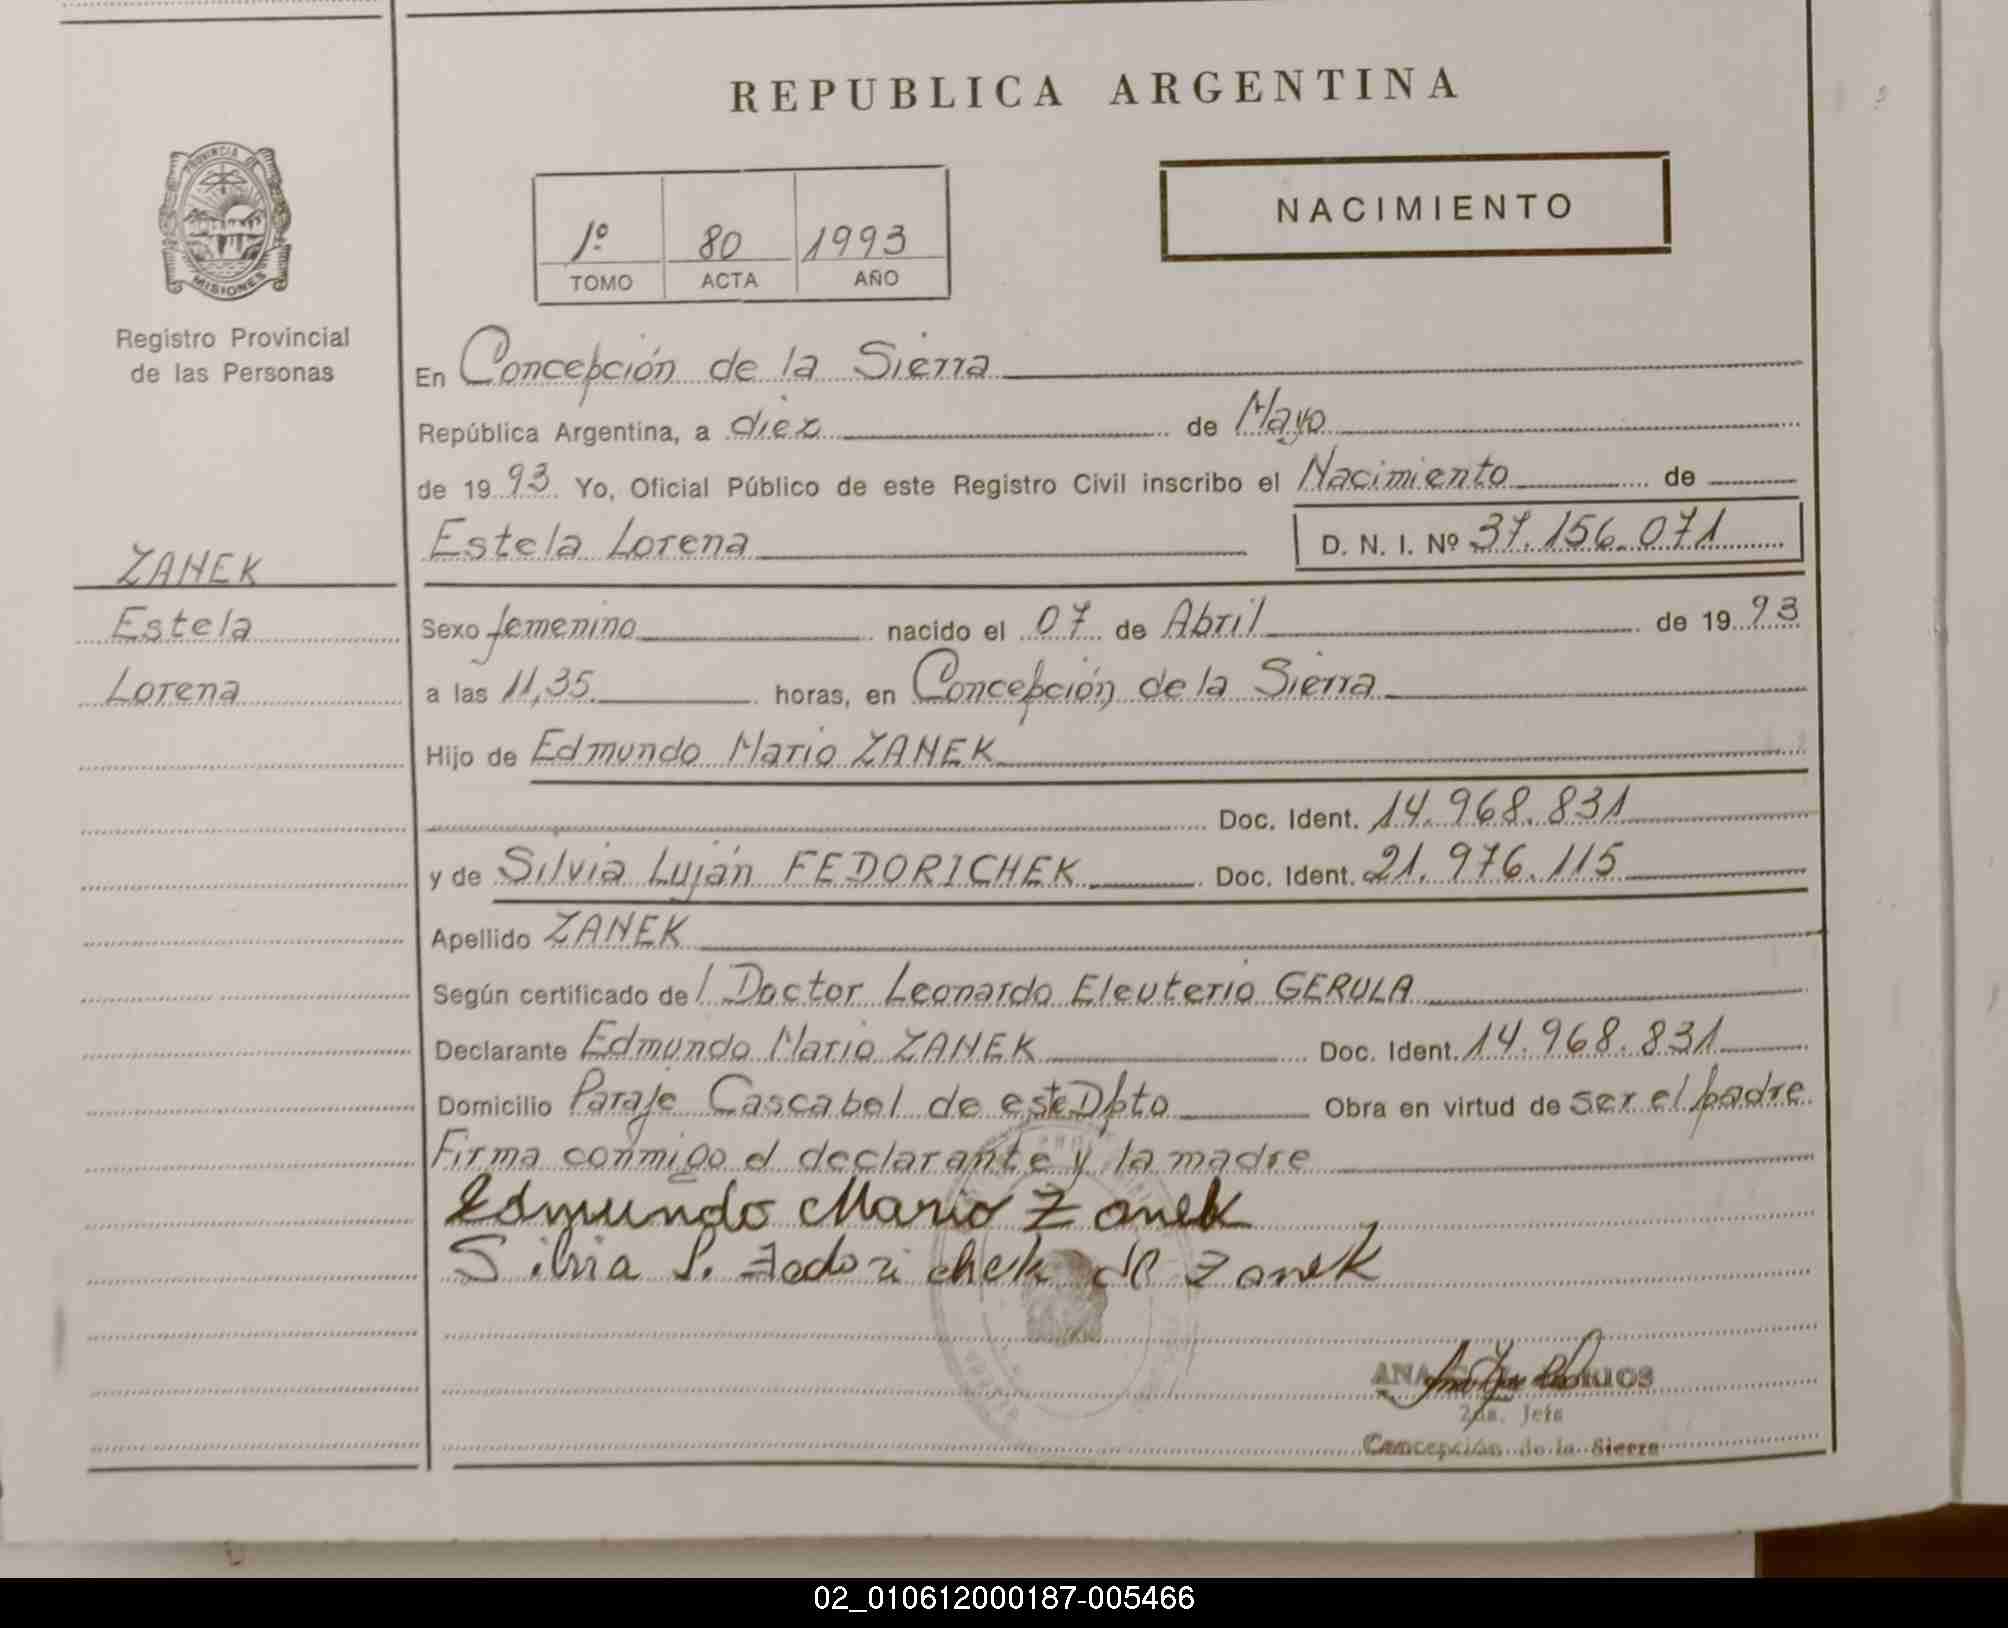 REPUBLICA ARGENTINA
PROVINCIA DE MISIONES
Registro Provincial
de las Personas
NACIMIENTO
1º 80 1993
TOMO ACTA AÑO
En Concepción de la Sierra
República Argentina, a diez de Mayo
de 1993. Yo, Oficial Público de este Registro Civil inscribo el Nacimiento de
Estela Lorena D. N. I. Nº 37.156.071
ZANEK
Estela
Lorena
Sexo femenino nacido el 07 de Abril de 1993
a las 11,35 horas, en Concepción de la Sierra
Hijo de Edmundo Mario ZANEK
Doc. Ident. 14.968.831
y de Silvia Luján FEDORICHEK Doc. Ident. 21.976.115
Apellido ZANEK
Según certificado del Doctor Leonardo Eleuterio GERULA
Declarante Edmundo Mario ZANEK Doc. Ident. 14.968.831
Domicilio Paraje Cascabel de este Dpto Obra en virtud de ser el padre
Firma conmigo el declarante y la madre
Edmundo Mario Zanek
Silvia L. Fedorichek de Zanek
ANA RIOS
2da. Jefa
Concepción de la Sierra
02_010612000187-005466